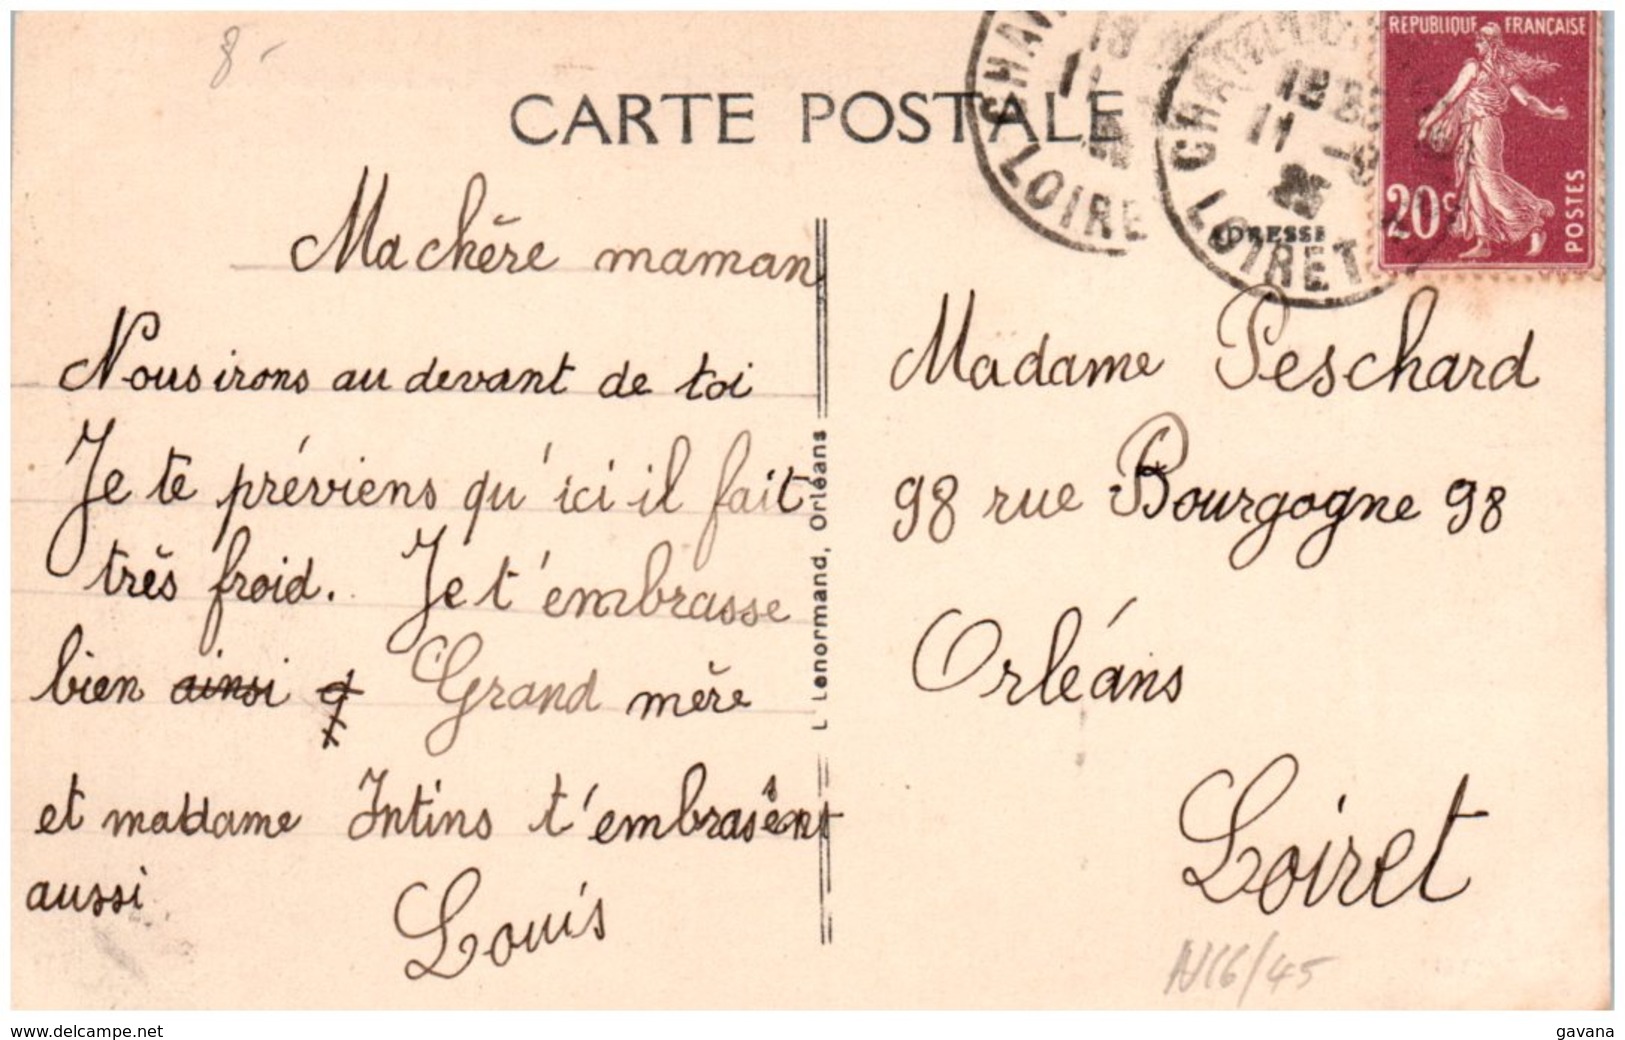 8-
CARTE POSTALE
RÉPUBLIQUE FRANÇAISE
20c
POSTES
LOIRET
LOIRET
ADRESSE
Ma chère maman
Nous irons au devant de toi
Je te préviens qu'ici il fait
très froid. Je t'embrasse
bien ainsi q Grand mère
et madame Intins t'embrasent
aussi
Louis
L Lenormand, Orléans
Madame Peschard
98 rue Bourgogne 98
Orléans
Loiret
www.delcampe.net
gavana